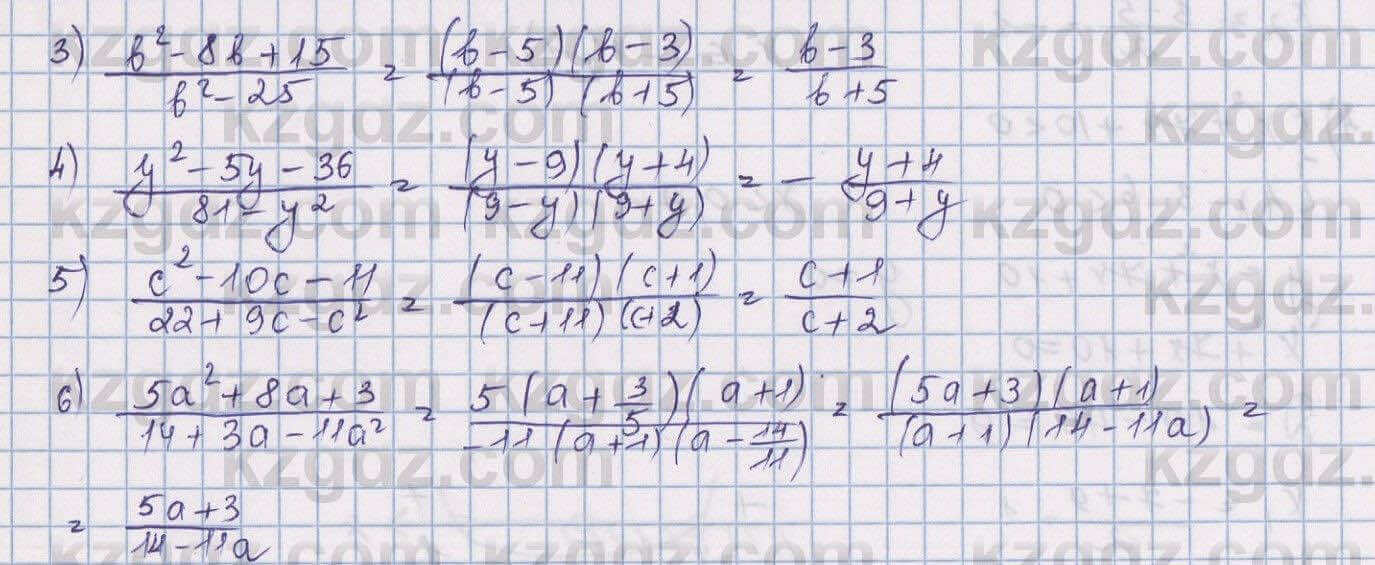 3) (b²-8b+15)/(b²-25) = ((b-5)(b-3))/((b-5)(b+5)) = (b-3)/(b+5)
4) (y²-5y-36)/(81-y²) = ((y-9)(y+4))/((9-y)(9+y)) = - (y+4)/(9+y)
5) (c²-10c-11)/(22+9c-c²) = ((c-11)(c+1))/((c+11)(c+2)) = (c+1)/(c+2)
6) (5a²+8a+3)/(14+3a-11a²) = (5(a+3/5)(a+1))/(-11(a+1)(a-14/11)) = ((5a+3)(a+1))/((a+1)(14-11a)) =
= (5a+3)/(14-11a)
kzgdz.com